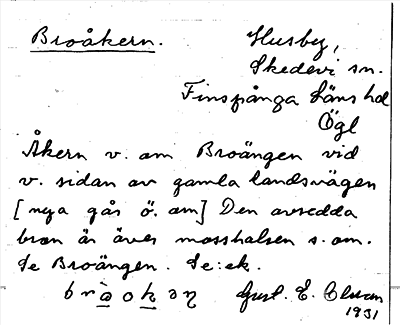 Broåkern.
Husby,
Skedevi sn.
Finspånga läns hd
Ögl
Åkern v. om Broängen vid
v. sidan av gamla landsvägen
[nya går ö. om] Den avsedda
bron är över mosshalsen s. om.
Se Broängen. Se: ek.
Gust. E. Olsson
1931